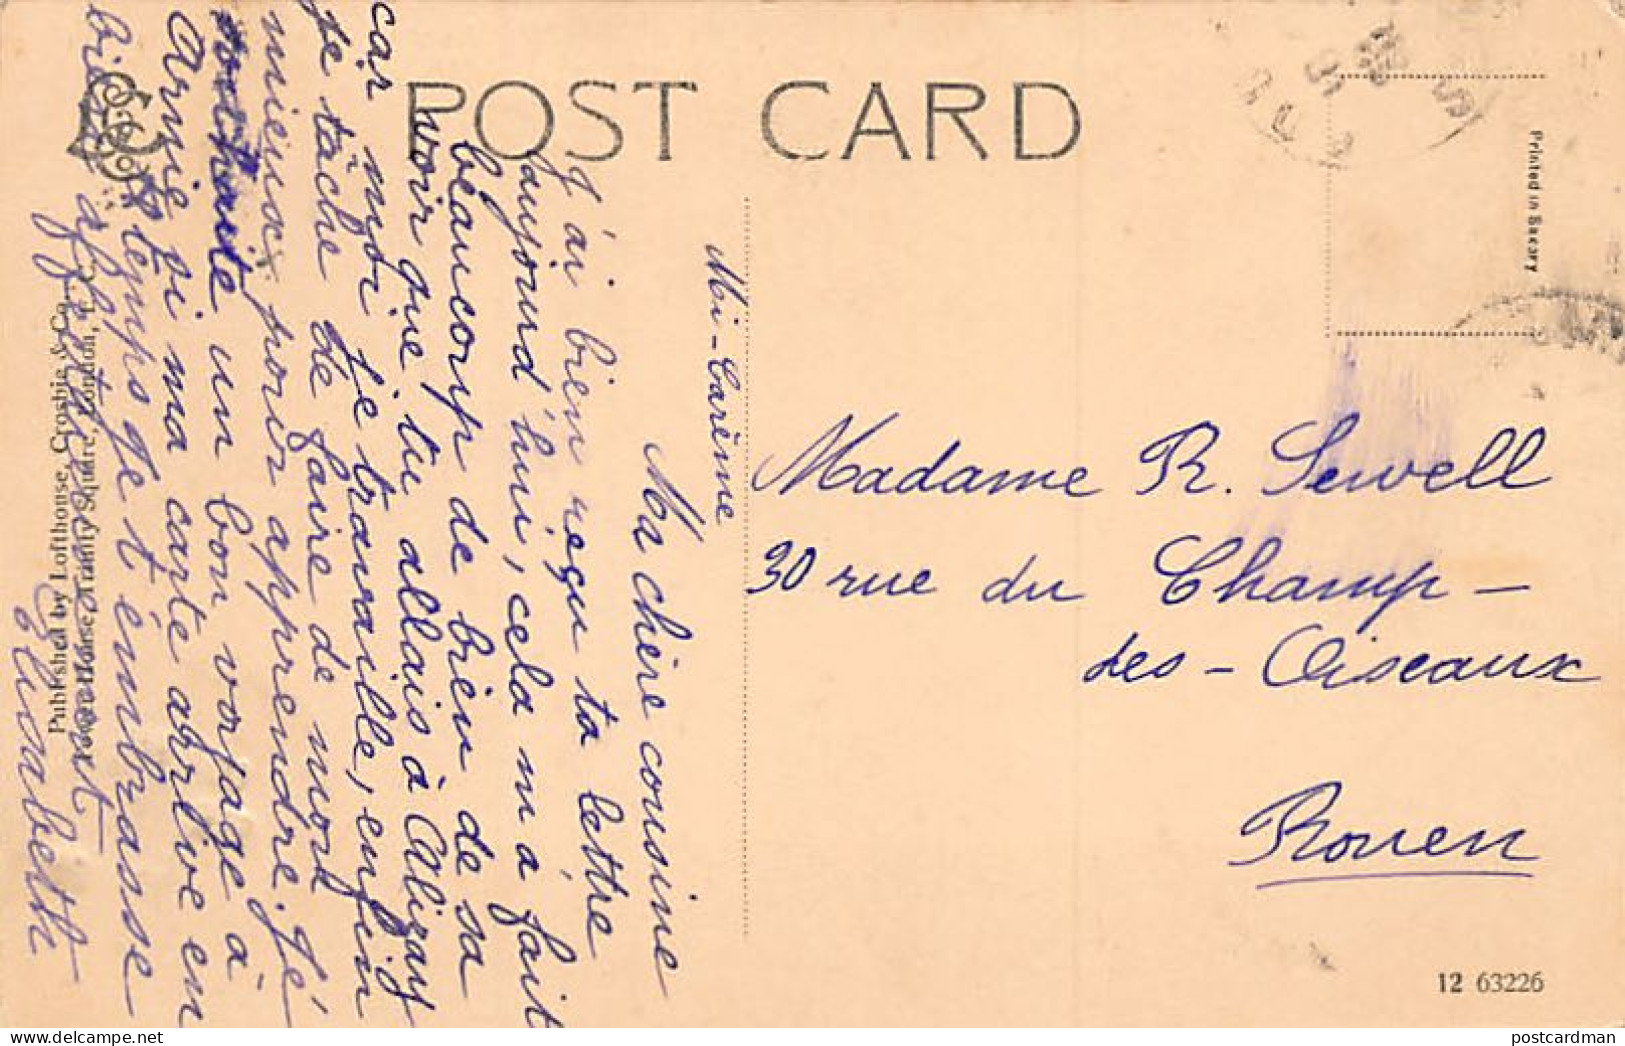 POST CARD
Printed in Saxony
Mi-Carême
Ma chère cousine
J'ai bien reçu ta lettre
aujourd'hui, cela m'a fait
beaucoup de bien de sa
voir que tu allais à Alizay
car moi je travaille, enfin
je tâche de faire de mon
mieux pour apprendre. Je
souhaite un bon voyage à
Annie si ma carte arrive en
temps je t'embrasse
bien affectueusement
Elisabeth
Madame R. Sewell
30 rue du Champ-
des-Oiseaux
Rouen
Published by Lofthouse, Crosbie & Co.
Trinity Square, London, E.C.
12 63226
postcardman